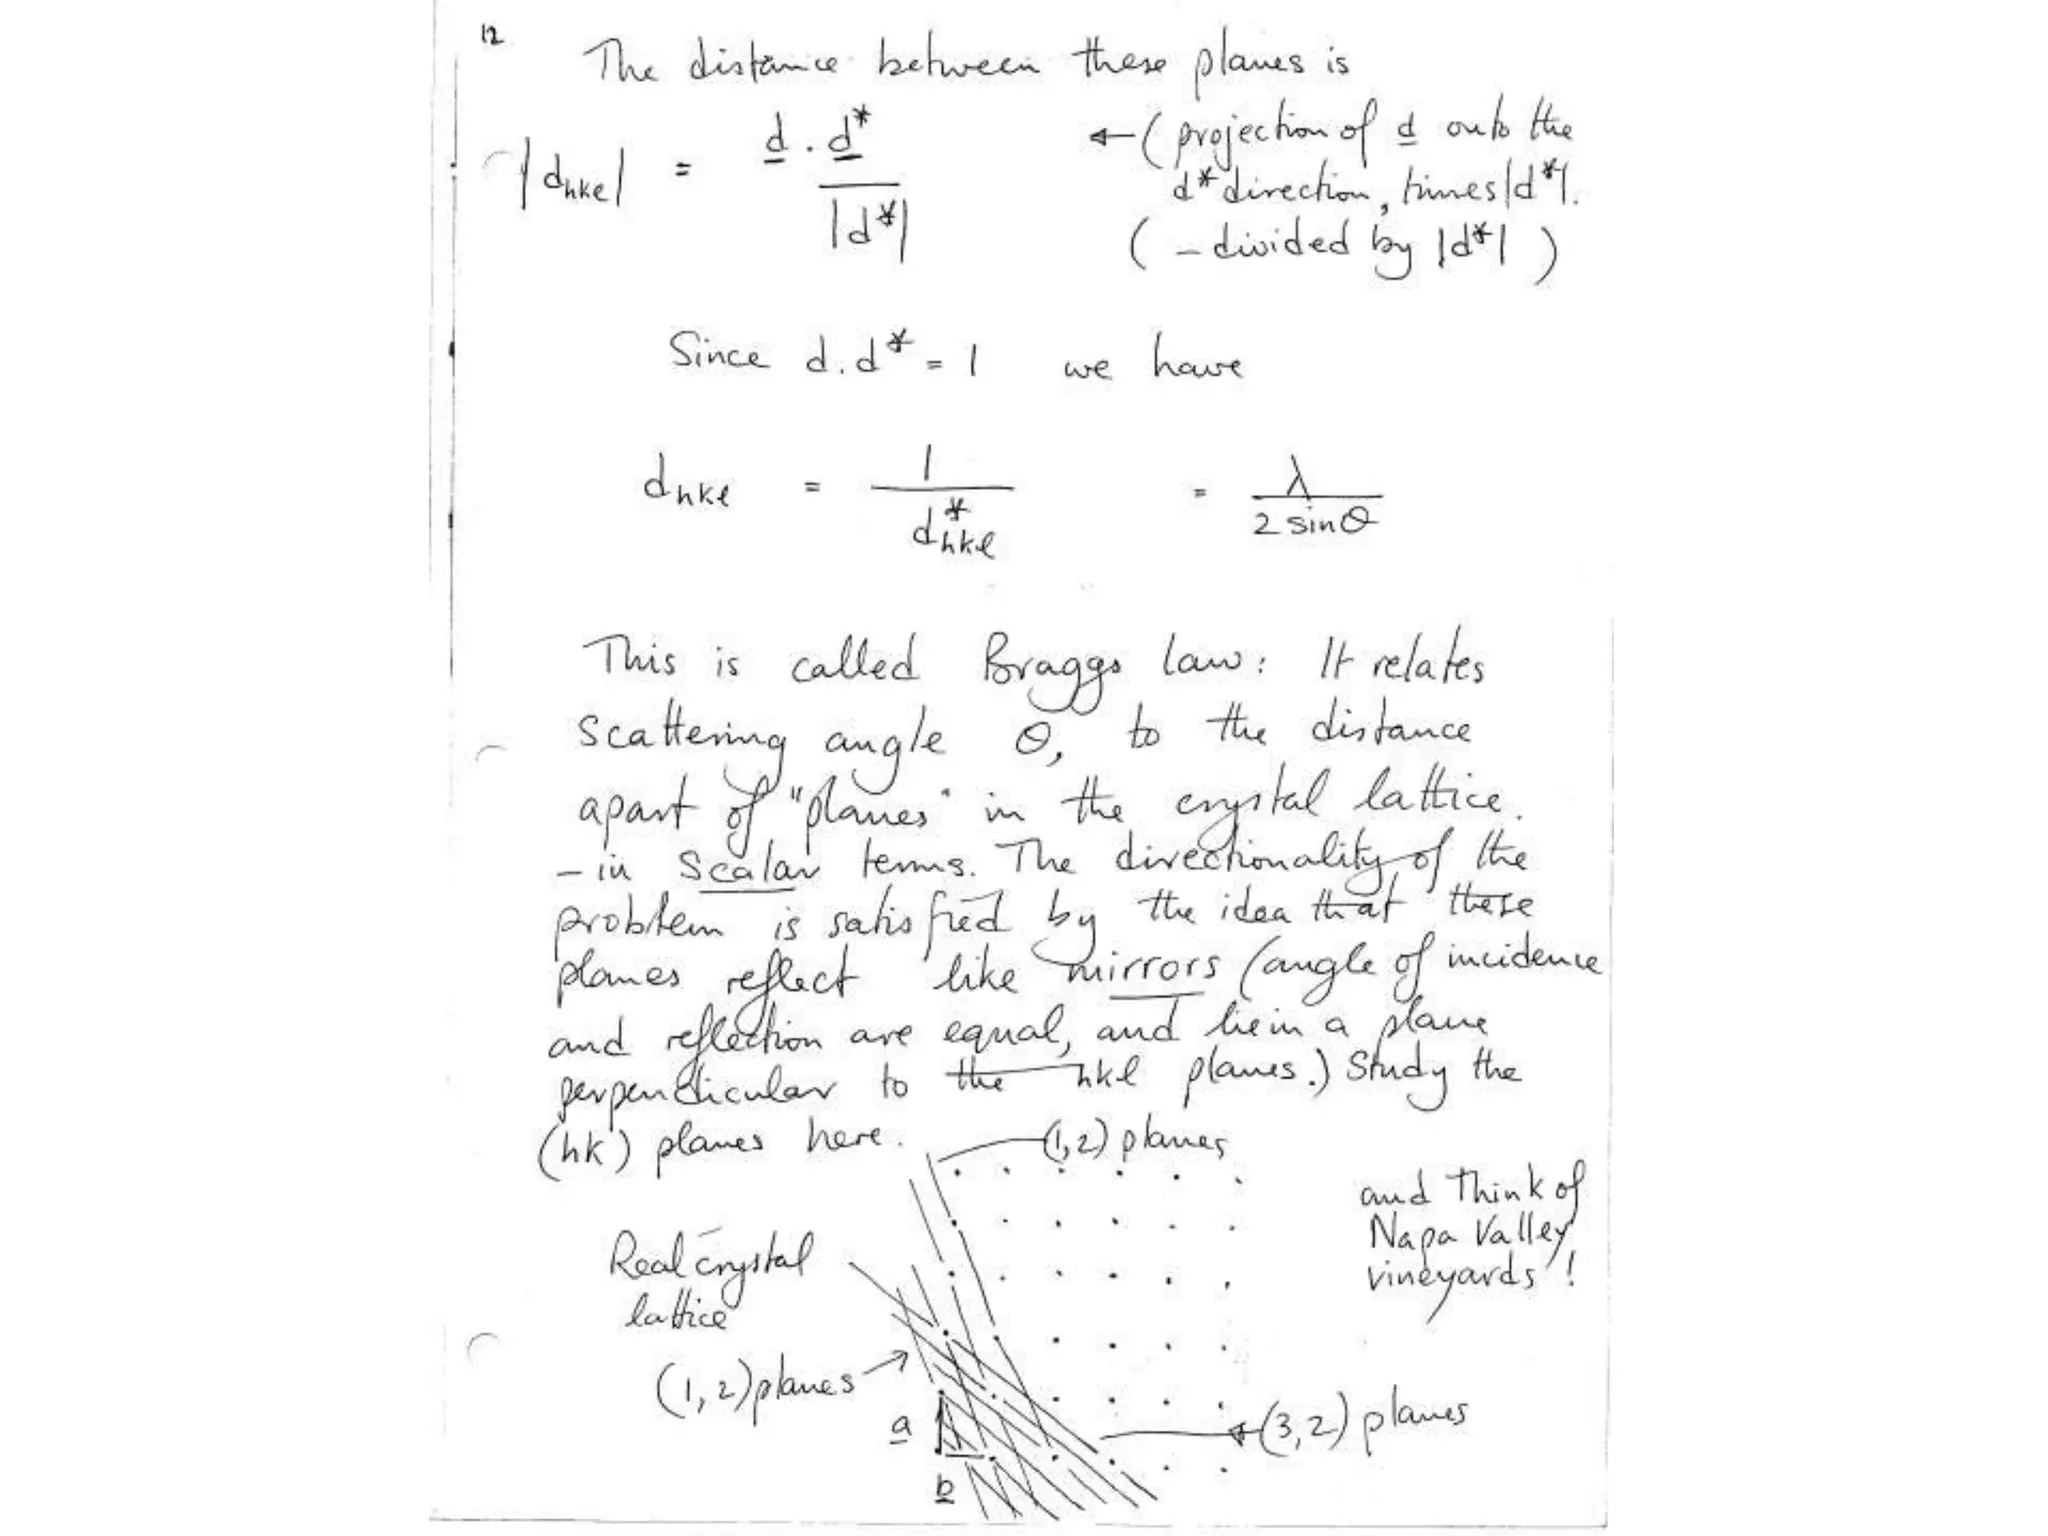 12
The distance between these planes is
|dhkl| = d . d* / |d*| ← (projection of d onto the
d* direction, times |d*|.
( – divided by |d*| )
Since d.d* = 1 we have
dhkl = 1 / d*hkl = λ / 2 sinθ
This is called Braggs law: It relates
scattering angle θ, to the distance
apart of "planes" in the crystal lattice.
– in scalar terms. The directionality of the
problem is satisfied by the idea that these
planes reflect like mirrors (angle of incidence
and reflection are equal, and lie in a plane
perpendicular to the hkl planes.) Study the
(hk) planes here.
(1,2) planes
and Think of
Napa Valley
vineyards!
Real crystal
lattice
(1, 2) planes
(3,2) planes
a
b